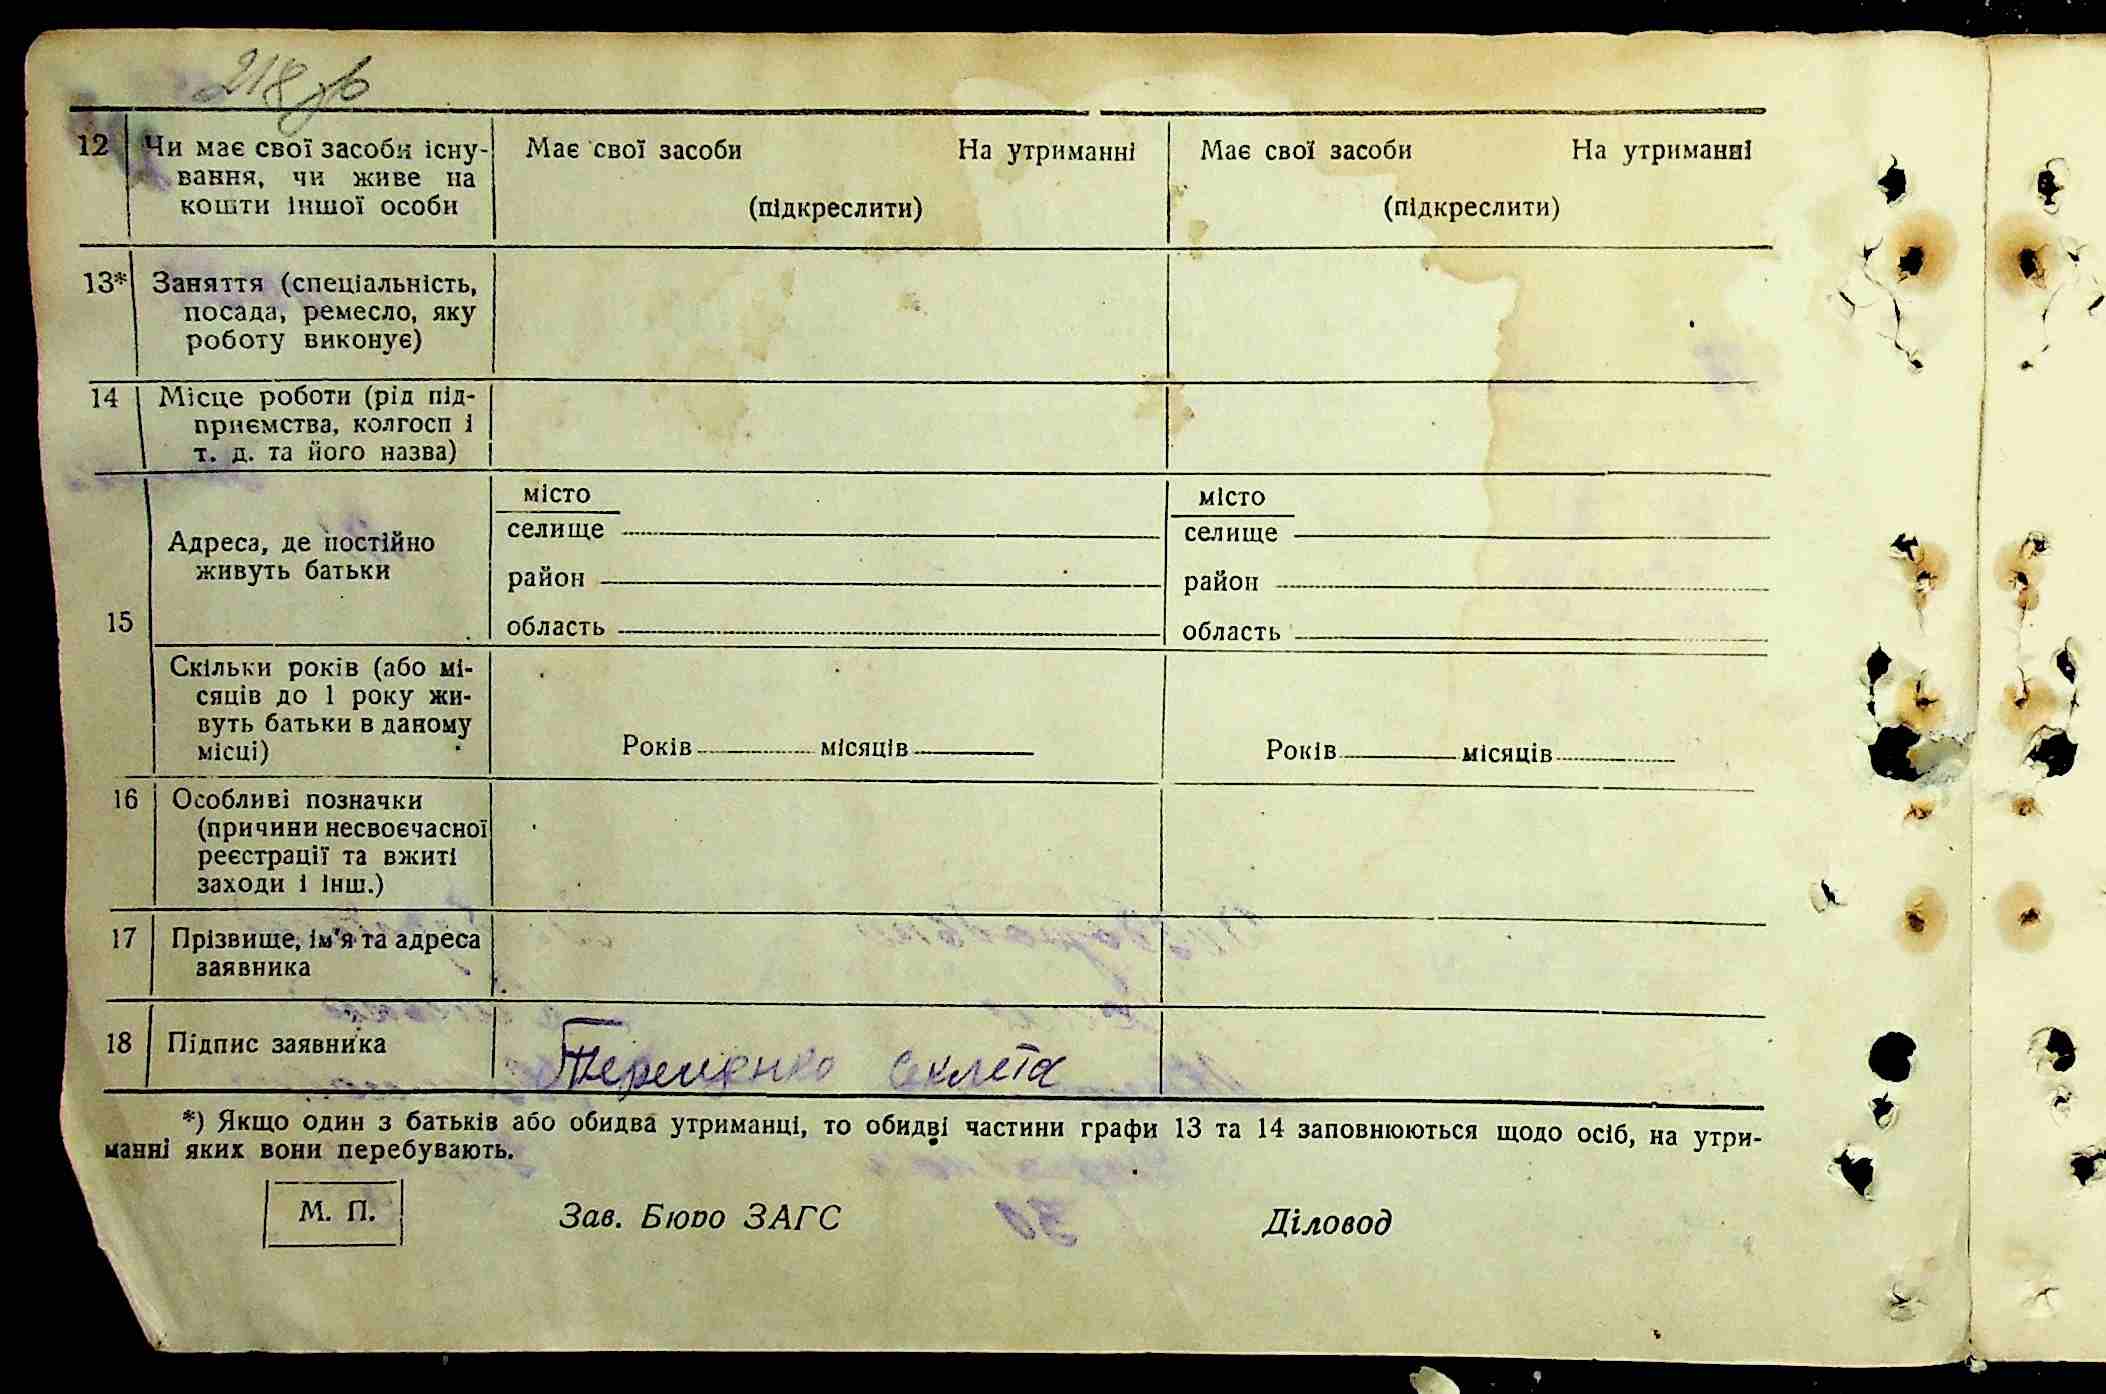 218 зв
12 Чи має свої засоби існу-
вання, чи живе на
кошти іншої особи
Має свої засоби На утриманні
(підкреслити)
Має свої засоби На утриманні
(підкреслити)
13* Заняття (спеціальність,
посада, ремесло, яку
роботу виконує)
14 Місце роботи (рід під-
приємства, колгосп і
т. д. та його назва)
15
Адреса, де постійно
живуть батьки
місто
селище
район
область
місто
селище
район
область
Скільки років (або мі-
сяців до 1 року жи-
вуть батьки в даному
місці)
Років місяців
Років місяців
16 Особливі позначки
(причини несвоєчасної
реєстрації та вжиті
заходи і інш.)
17 Прізвище, ім'я та адреса
заявника
18 Підпис заявника
Терещенко Секлета
*) Якщо один з батьків або обидва утриманці, то обидві частини графи 13 та 14 заповнюються щодо осіб, на утри-
манні яких вони перебувають.
М. П. Зав. Бюро ЗАГС Діловод